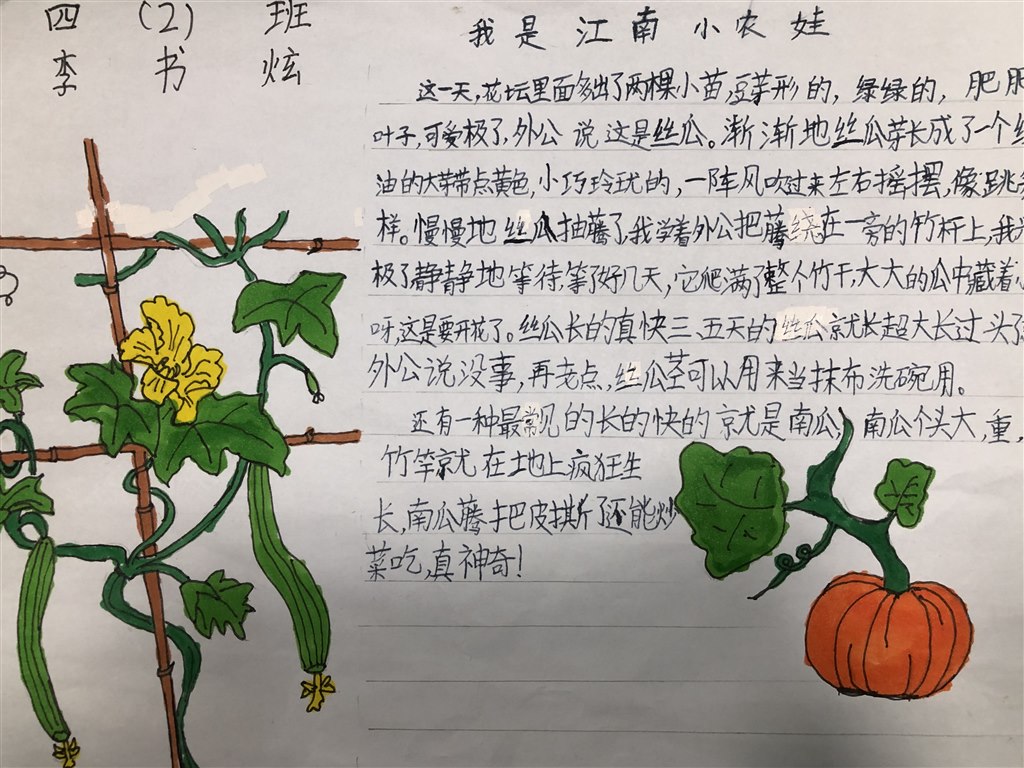 四（2）班
李书炫
我是江南小农娃
这一天,花坛里面多出了两棵小苗,豆芽形的，绿绿的，肥
叶子,可爱极了,外公说这是丝瓜。渐渐地丝瓜芽长成了一个
油的大芽带点黄色,小巧玲珑的,一阵风吹过来左右摇摆,像跳
样。慢慢地丝瓜抽藤了,我学着外公把藤绕在一旁的竹杆上,我
极了静静地等待,等了好几天,它爬满了整个竹干,大大的瓜中藏着
呀,这是要开花了。丝瓜长的真快三、五天的丝瓜就长超大长过头了
外公说没事,再老点,丝瓜茎可以用来当抹布洗碗用。
还有一种最常见的长的快的就是南瓜,南瓜个头大,重,
竹竿就在土地上疯狂生
长,南瓜藤把皮掰了还能炒
菜吃,真神奇!